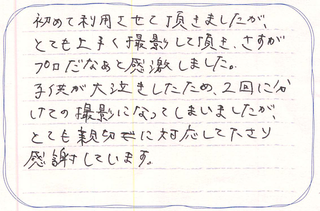 初めて利用させて頂きましたが、
とても上手く撮影して頂き、さすが
プロだなあと感激しました。
子供が大泣きしたため、2回に分
けての撮影になってしまいましたが、
とても親切に対応して下さり
感謝しています。